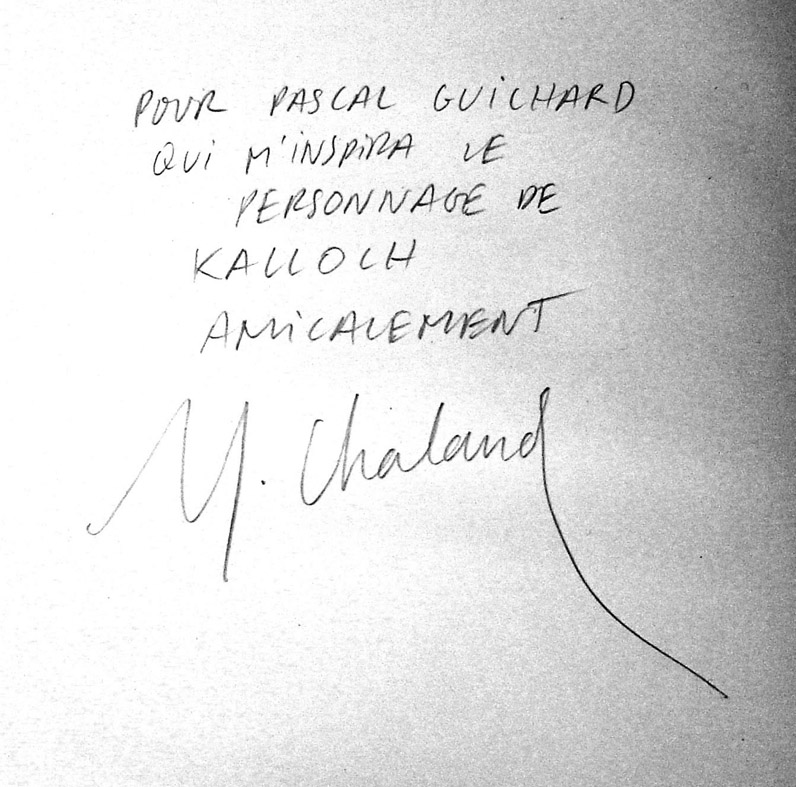 POUR PASCAL GUICHARD
QUi M'iNSPiRA LE
PERSONNAGE DE
KALLOCH
AMiCALEMENT
Y. Chaland